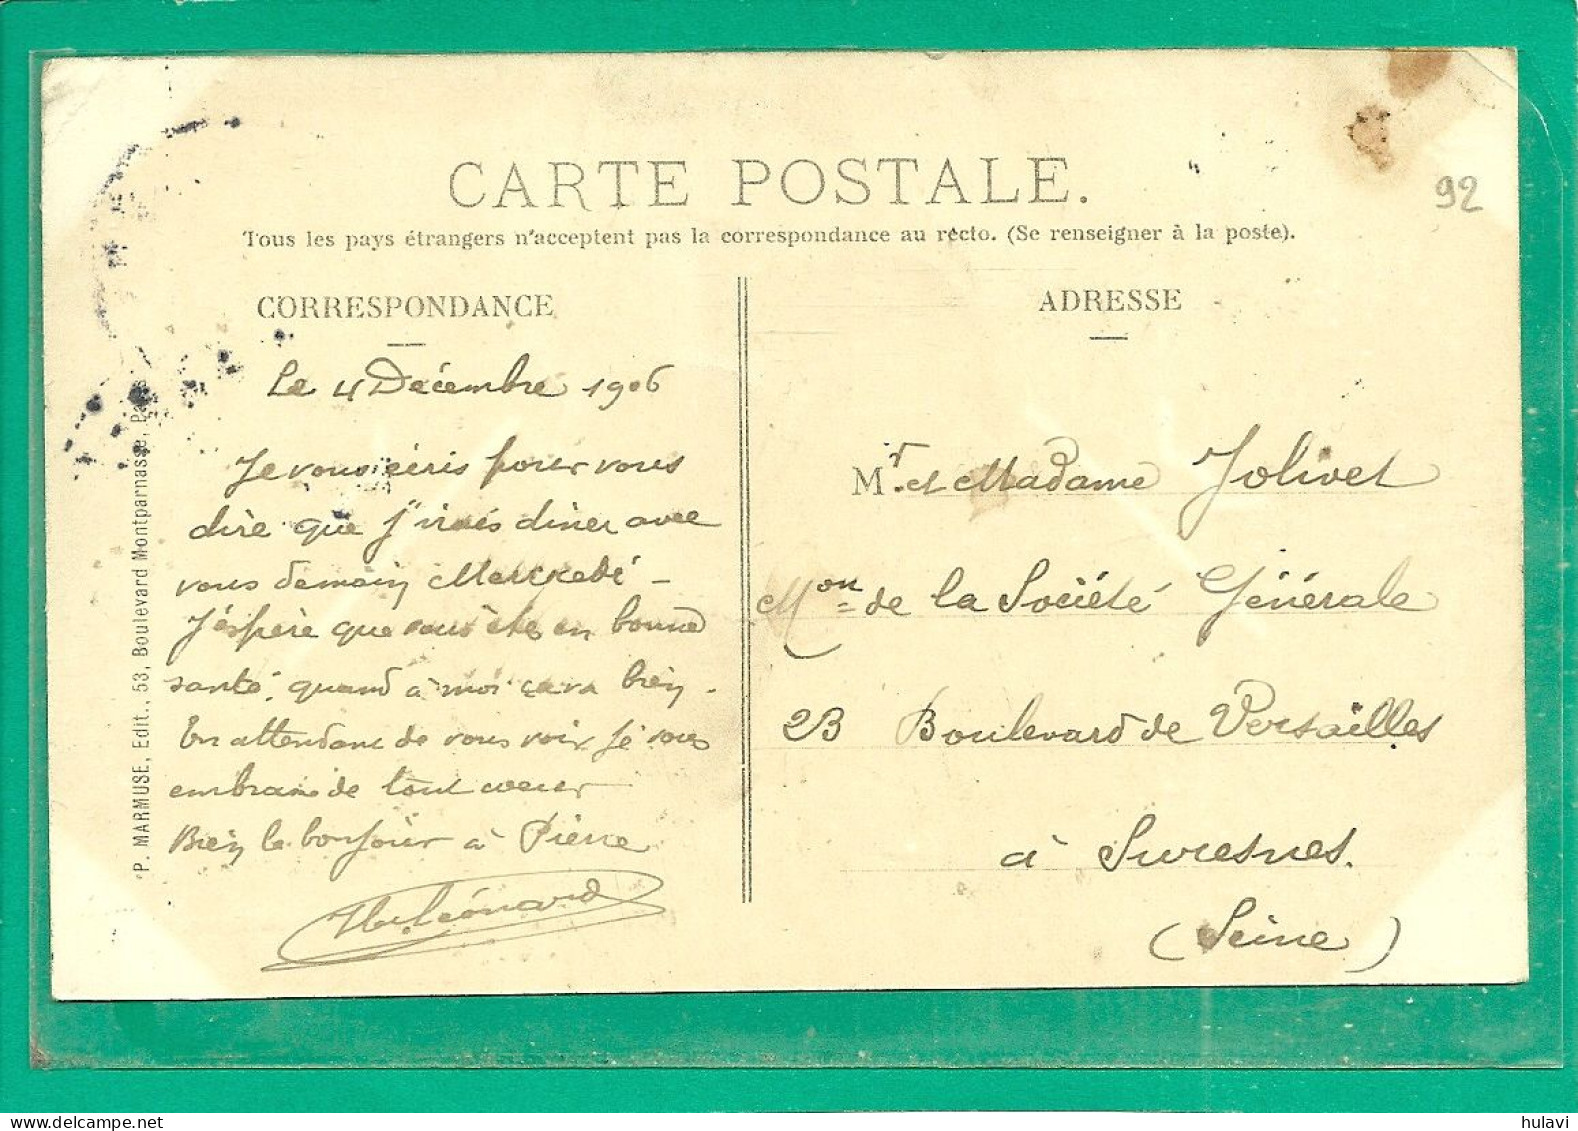 CARTE POSTALE.
92
Tous les pays étrangers n'acceptent pas la correspondance au recto. (Se renseigner à la poste).
CORRESPONDANCE
Le 4 Décembre 1906
Je vous écris pour vous
dire que j'irais diner avec
vous demain Mercredi -
J'éspère que vous êtes en bonne
santé, quand à moi ça va bien.
En attendant de vous voir je vous
embrasse de tout coeur
Bien le bonjour à Pierre
Léonard
P. MARMUSE, Edit., 53, Boulevard Montparnasse, Paris
ADRESSE
Mr. et Madame Jolivet
Mon de la Société Générale
23 Boulevard de Versailles
à Suresnes.
(Seine)
hulavi